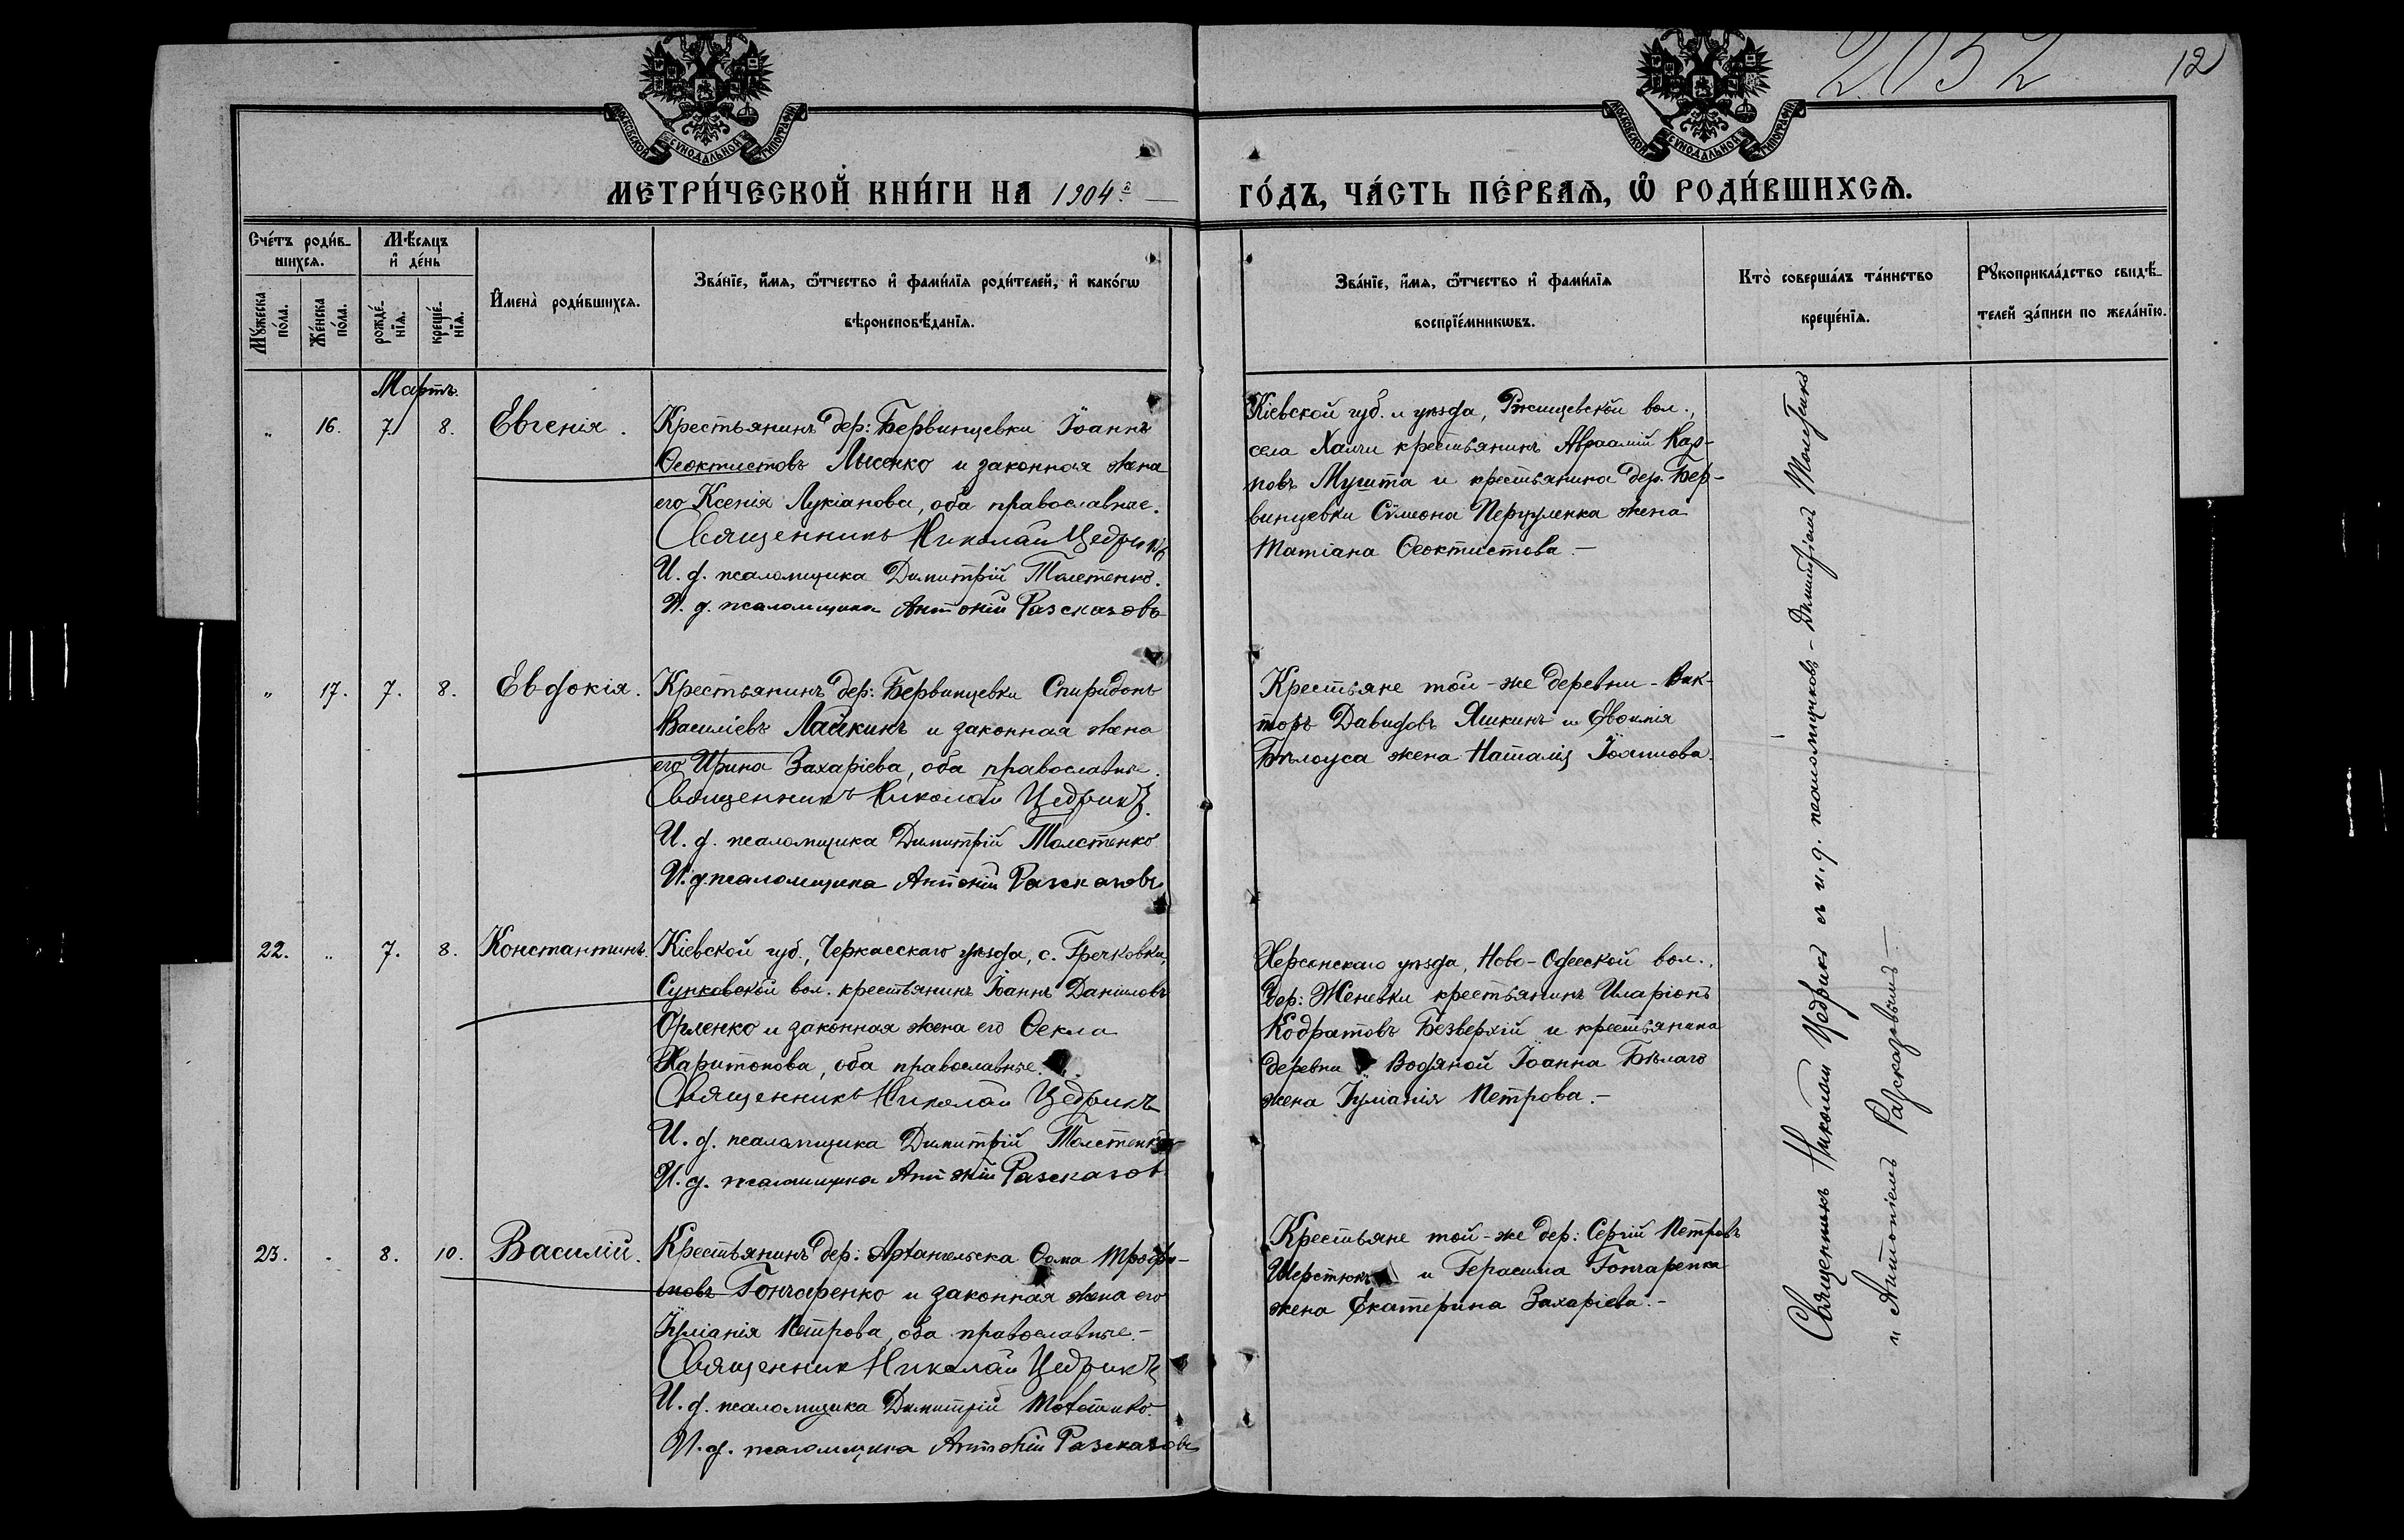 2052
12
МОСКОВСКОЙ СѴНОДАЛЬНОЙ ТИПОГРАФІИ
МОСКОВСКОЙ СѴНОДАЛЬНОЙ ТИПОГРАФІИ
МЕТРИ́ЧЕСКОЙ КНИ́ГИ НА 1904й ГО́ДЪ, ЧА́СТЬ ПЕ́РВАѦ, Ѡ҆ РОДИ́ВШИХСѦ.
Сче́тъ роди́в-
шихсѧ.
Мѣ́сѧцъ
и҆ де́нь
Мꙋ́жеска по́ла.
Же́нска по́ла.
рожде́-
нїѧ.
креще́-
нїѧ.
И҆мена̀ роди́вшихсѧ.
Зва́нїе, и҆́мѧ, ѻ҆́тчество и҆ фами́лїѧ роди́телей, и҆ како́гѡ
вѣроисповѣ́данїѧ.
Зва́нїе, и҆́мѧ, ѻ҆́тчество и҆ фами́лїѧ
воспрїе́мникѡвъ.
Кто̀ соверша́лъ та́инство
креще́нїѧ.
Рꙋкоприкла́дство свидѣ́-
телей за́писи по жела́нїю.
Мартъ.
" 16. 7. 8. Евгенія.
Крестьянинъ дер: Бервинцевки Іоаннъ
Ѳеоктистовъ Лысенко и законная жена
его Ксенія Лукіанова, оба православные.
Священникъ Николай Цедрикъ
И. д. псаломщика Димитрій Толстенко.
И. д. псаломщика Антоній Разсказовъ
Кіевской губ. и уѣзда, Ржищевской вол.,
села Халчи крестьянинъ Авраамій Кар-
повъ Мушта и крестьянина дер. Бер-
винцевки Сѵмеона Перцуленка жена
Татіана Ѳеоктистова.-
" 17. 7. 8. Евдокія.
Крестьянинъ дер: Бервинцевки Спиридонъ
Василіевъ Лайкинъ и законная жена
его Ирина Захаріева, оба православные.
Священникъ Николай Цедрикъ.
И. д. псаломщика Димитрій Толстенко
И. д. псаломщика Антоній Разсказовъ
Крестьяне той-же деревни - Вик-
торъ Давидовъ Яшкинъ и
Бѣлоуса жена Наталія Іоаннова.
22. " 7. 8. Константинъ.
Кіевской губ., Черкасскаго уѣзда, с. Гречковки,
Сунковской вол. крестьянинъ Іоаннъ Даніиловъ
Орленко и законная жена его Ѳекла
Харитонова, оба православные.
Священникъ Николай Цедрикъ
И. д. псаломщика Димитрій Толстенко
И. д. псаломщика Антоній Разсказов
Херсонскаго уѣзда, Ново-Одесской вол.,
дер: Женевки крестьянинъ Иларіонъ
Кодратовъ Безверхій и крестьянина
деревни Водяной Іоанна Бѣлаго
жена Іуліанія Петрова.-
23. " 8. 10. Василій.
Крестьянинъ дер: Архангельска Ѳома Трофи-
мовъ Гончаренко и законная жена его
Іуліанія Петрова, оба православные.-
Священник Николай Цедрикъ
И. д. псаломщика Димитрій Толстенко.
И. д. псаломщика Антоній Разсказовъ
Крестьяне той-же дер: Сергій Петровъ
Шерстюкъ и Герасима Гончаренка
жена Екатерина Захаріева.-
Священникъ Николай Цедрикъ съ и. д. псаломщиковъ - Димитріемъ Толстенкъ
и Антоніемъ Разсказовымъ.-